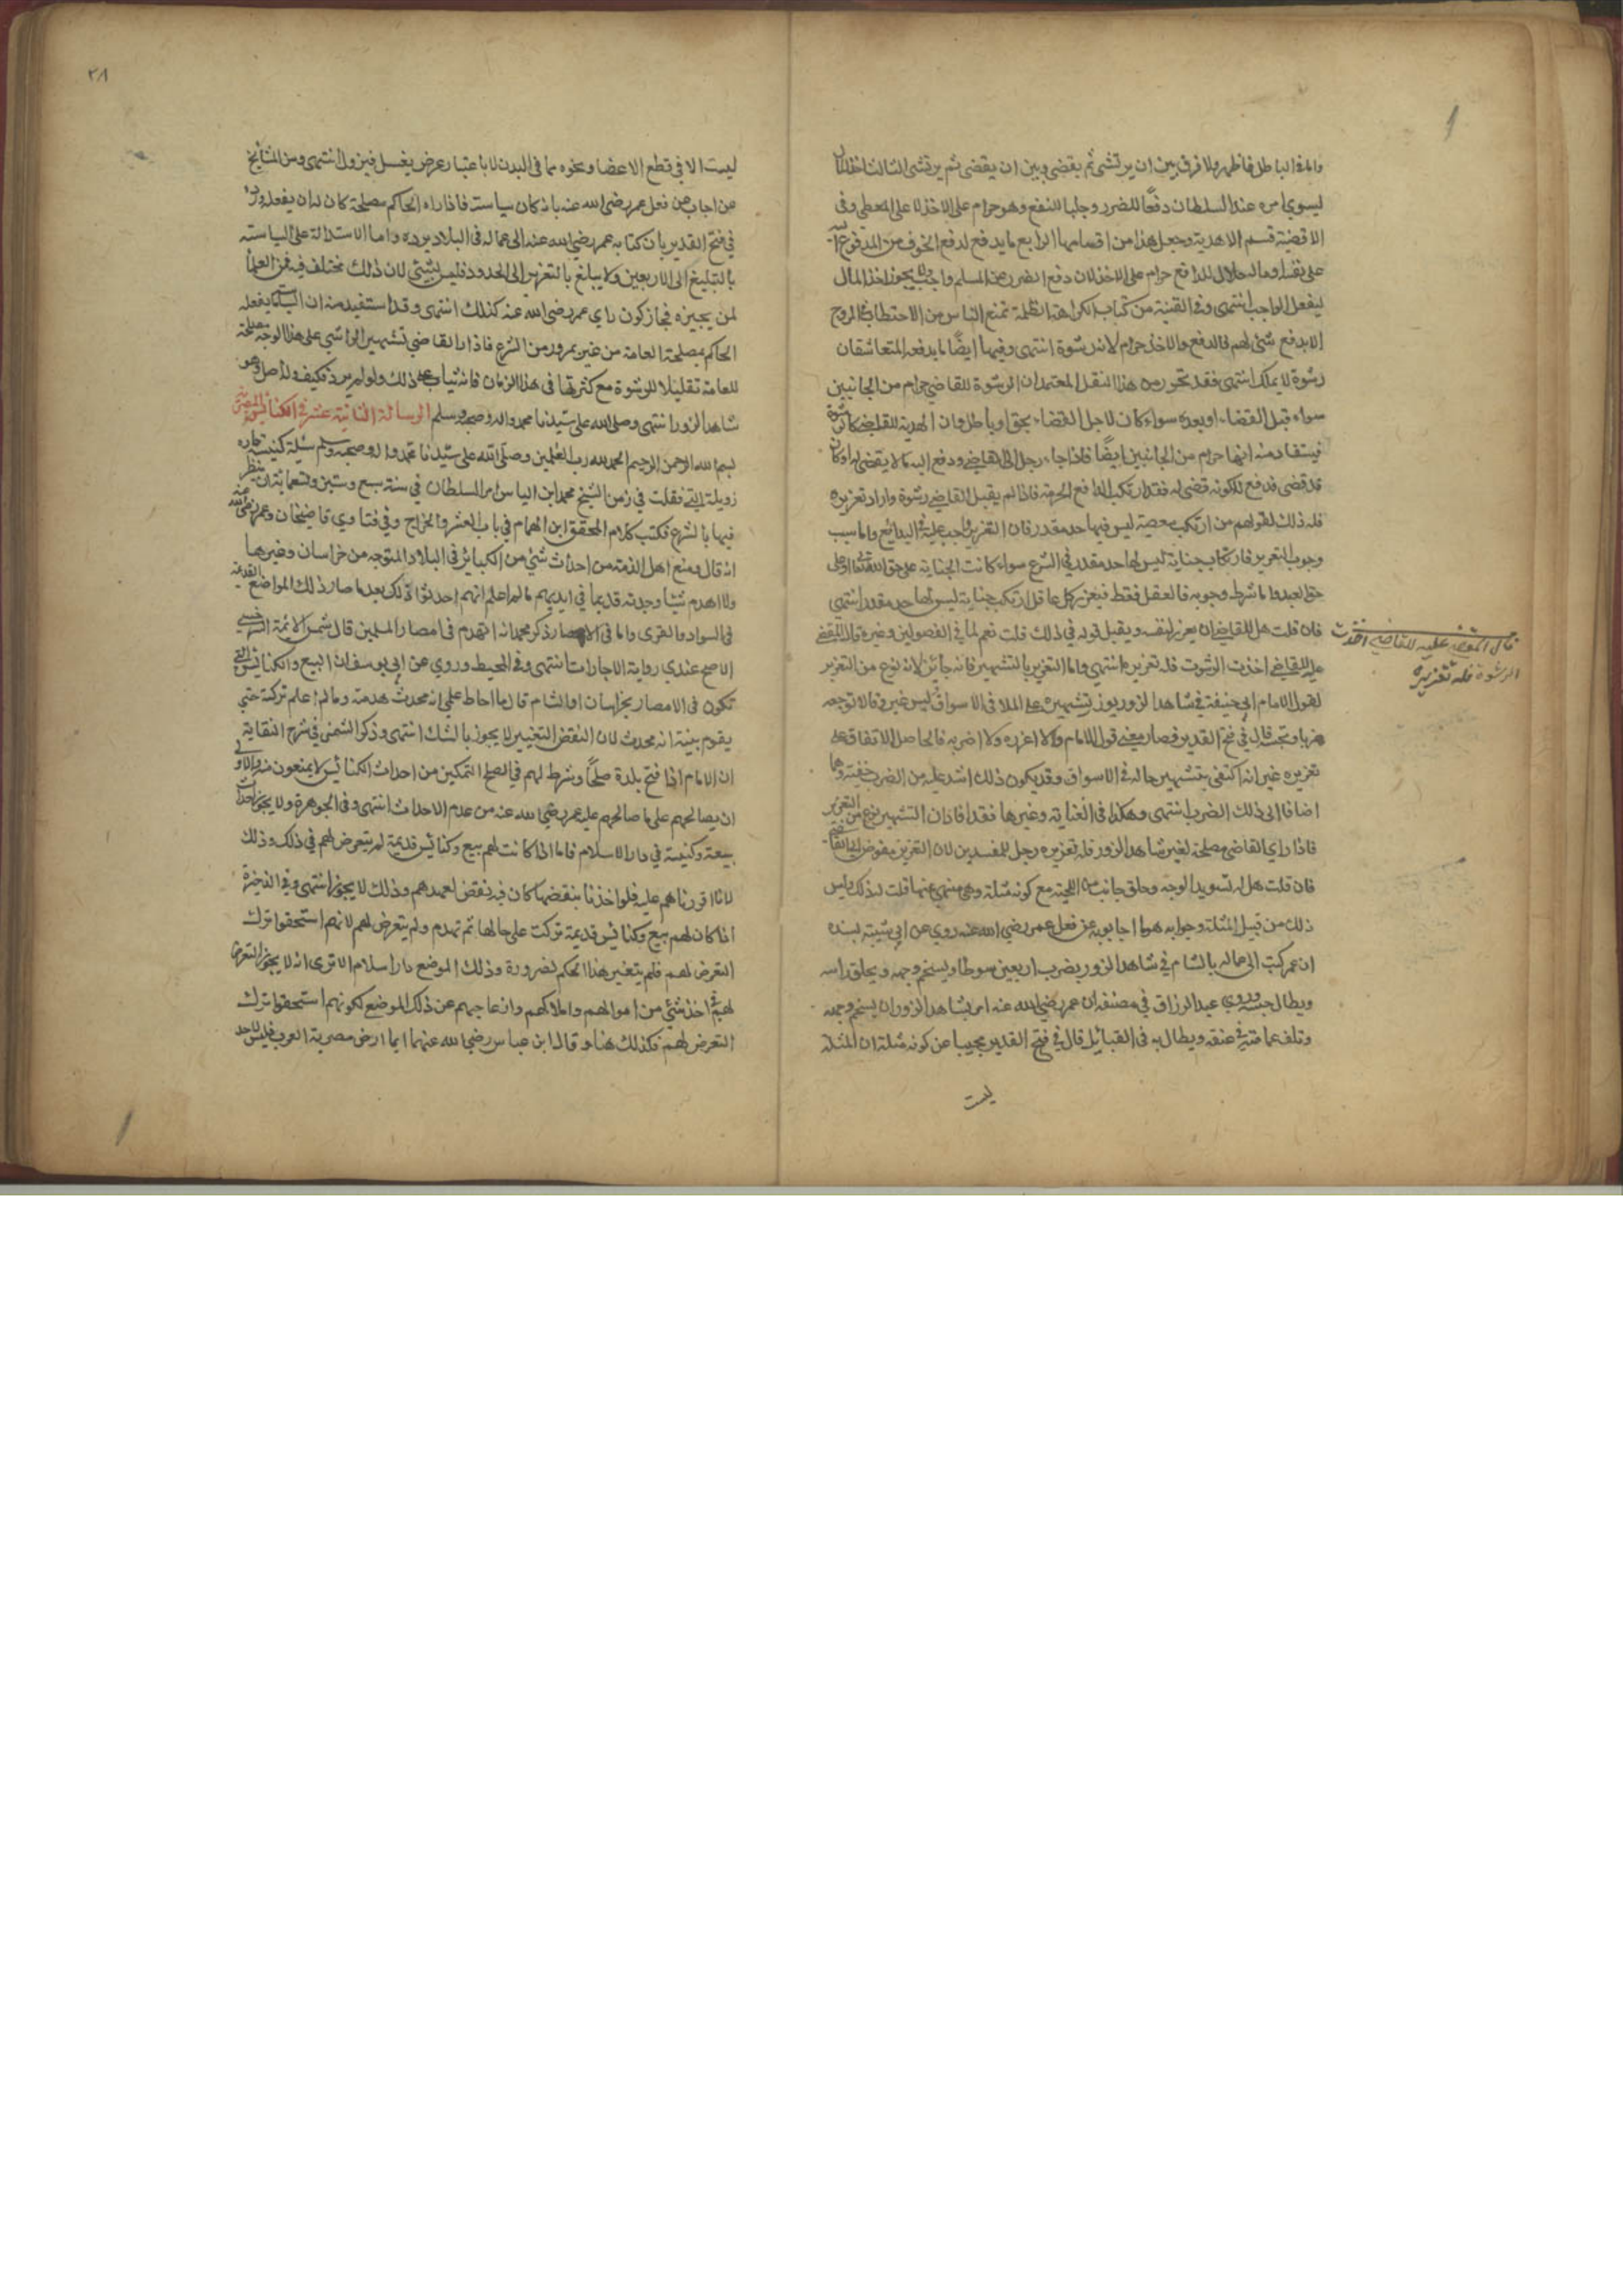 والمرة الباطل فاظهر ولا فرق بين ان يرتشي ثم يقضي وبين ان يقضي ثم يرتشي الثالث اخذ المال
ليسوي امره عند السلطان دفعا للضرر وجلبا للنفع وهو حرام على الاخذ لا على المعطي وفي
الاقضية قسم الاهدية وجعل هذا من اقسامها الرابع ما يدفع لدفع الخوف من المدفوع اليه
على نفسه او ماله حلال للدافع حرام على الاخذ لان دفع الضرر عن المسلم واجب ولا يجوز اخذ المال
ليفعل الواجب انتهى وفي القنية من كتاب الكراهة الظلمة تمنع الناس من الاحتطاب في المروج
الا بدفع شئ لهم فالدفع والاخذ حرام لانه رشوة انتهى وفيها ايضا ما يدفعه المتعاشقان
رشوة لا يملك انتهى فقد تحرر من هذا النقل المعتمد ان الرشوة للقاضي حرام من الجانبين
سواء قبل القضاء او بعده سواء كان لاجل القضاء بحق او باطل وان الهدية للقاضي كالرشوة
فيستفاد منه انها حرام من الجانبين ايضا فاذا جاء رجل الى القاضي ودفع اليه مالا يقضي له او كان
قد قضى فدفع لكونه قضى له فقد ارتكب الدافع الحرمة فاذا لم يقبل القاضي رشوة واراد تعزيره
فله ذلك لقولهم من ارتكب معصية ليس فيها حد مقدر فان التعزير واجب عليه في البدائع واما سبب
وجوب التعزير فارتكاب جناية ليس لها حد مقدر في الشرع سواء كانت الجناية على حق الله تعالى او على
حق العبد واما شرط وجوبه فالعقل فقط فيعزر كل عاقل ارتكب جناية ليس لها حد مقدر انتهى
فان قلت هل للقاضي ان يعزر لنفسه ويقبل قوله في ذلك قلت نعم لما في الفصولين وغيره قال المقضي
عليه للقاضي اخذت الرشوت فله تعزيره انتهى واما التعزير بالتشهير فانه جائز لانه نوع من التعزير
لقول الامام ابي حنيفة في شاهد الزور يعزر بتشهيره على الملا في الاسواق ليس غير وقالا نوجعه
ضربا ونحبسه قال في فتح القدير فصار معنى قول الامام ولا اعزره ولا اضربه فالحاصل الاتفاق على
تعزيره غير انه اكتفى بتشهير حاله في الاسواق وقد يكون ذلك اشد عليه من الضرب خفية وهما
اضافا الى ذلك الضرب انتهى وهكذا في العناية وغيرها فقد افاد ان التشهير نوع من التعزير
فاذا راى القاضي مصلحة لغير شاهد الزور فله تعزيره رجل للمفسدين لان التعزير مفوض الى القاضي
فان قلت هل له تسويد الوجه وحلق جانب من اللحية مع كونه مثلة وهي منهي عنها قلت له ذلك وليس
ذلك من قبيل المثلة وجوابه هو ما اجابوا به عن فعل عمر رضي الله عنه روي عن ابي شيبة بسنده
ان عمر كتب الى عماله بالشام في شاهد الزور يضرب اربعين سوطا ويسخم وجهه ويحلق راسه
ويطال حبسه وروى عبد الرزاق في مصنفه ان عمر رضي الله عنه امر بشاهد الزور ان يسخم وجهه
وتلف عمامته في عنقه ويطاف به في القبائل قال في فتح القدير مجيبا عن كونه مثلة ان المثلة
ليست
قال المقضي عليه للقاضي اخذت
الرشوة فله تعزيره
٢٨
ليست الا في قطع الاعضا ونحوه مما في البدن لا باعتبار عرض يغسل فيزول انتهى ومن المشايخ
من اجاب عن فعل عمر رضي الله عنه بانه كان سياسة فاذا راه الحاكم مصلحة كان له ان يفعله ورده
في فتح القدير بان كتابه عمر رضي الله عنه الى عماله في البلاد يرده واما الاستدلال على السياسة
بالتبليغ الى الاربعين ولا يبلغ بالتعزير الى الحدود فليس بشئ لان ذلك مختلف فيه فمن العلما
من يجيزه فجاز كون راي عمر رضي الله عنه كذلك انتهى وقد استفيد منه ان السياسة ما يفعله
الحاكم بمصلحة العامة من غير ورود من الشرع فاذا راى القاضي تشهير الراشي على هذا الوجه مصلحة
للعامة تقليلا للرشوة مع كثرتها في هذا الزمان فانه يثاب على ذلك ولو لم يرد فكيف وله اصل وهو
شاهد الزور انتهى وصلى الله على سيدنا محمد واله وصحبه وسلم الرسالة الثانية عشر في الكنائس المصرية
بسم الله الرحمن الرحيم الحمد لله رب العلمين وصلى الله على سيدنا محمد واله وصحبه وسلم سئلة كنيسة بحارة
زويلة التي قفلت في زمن الشيخ محمد ابن الياس امر السلطان في سنة سبع وستين وتسعمائة ان ينظر
فيها بالشرع فكتب كلام المحقق ابن الهمام في باب العشر والخراج وفي فتاوي قاضيخان وعمر رضي الله عنه
انه قال ومنع اهل الذمة من احداث شئ من الكبائر في البلاد المتوجه من خراسان وغيرها
ولا اهدم شيئا وجدته قديما في ايديهم مالم اعلم انهم احدثوا ذلك بعد ما صار ذلك المواضع القديمة
في السواد والقرى واما في الامصار ذكر محمد انه انهدم في امصار المسلمين قال شمس الائمة السرخسي
الاصح عندي رواية الاجارات انتهى وفي المحيط وروي عن ابي يوسف ان البيع والكنائس التي
تكون في الامصار بخراسان او الشام قال ما احاط علمي انه محدث هدمته وما لم اعلم تركته حتى
يقوم بينة انه محدث لان النقض التغيير لا يجوز بالشك انتهى وذكر الشمني في شرح النقاية
ان الامام اذا فتح بلدة صلحا وشرط لهم في الصلح التمكين من احداث الكنائس لا يمنعون منه والاولى
ان يصالحهم على ما صالحهم عليه عمر رضي الله عنه من عدم الاحداث انتهى وفي الجوهرة ولا يجوز احداث
بيعة وكنيسة في دار الاسلام فاما اذا كانت لهم بيع وكنائس قديمة لم يتعرض لهم في ذلك وذلك
لانا اقررناهم عليه فلو اخذنا بنقضها كان فيه نقض لعهدهم وذلك لا يجوز انتهى وفي الذخيرة
اذا كان لهم بيع وكنائس قديمة تركت على حالها ثم تهدم ولم يتعرض لهم لانهم استحقوا ترك
التعرض لهم فلم يتغير هذا الحكم لضرورة وذلك الموضع دار اسلام الا ترى انه لا يجوز التعرض
لهم في اخذ شئ من اموالهم واملاكهم وازعاجهم عن ذلك الموضع لكونهم استحقوا ترك
التعرض لهم فكذلك هنا وقال ابن عباس رضي الله عنهما ايما ارض مصرية العرب فليس لاحد